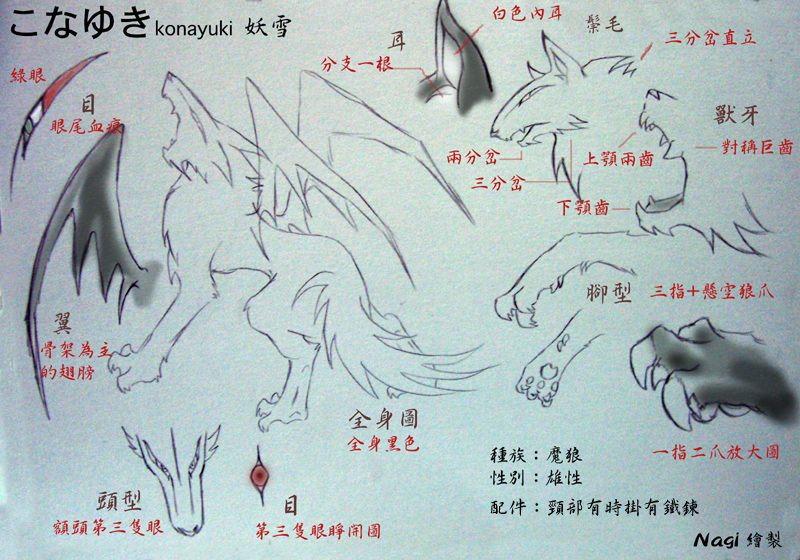 こなゆき konayuki 妖雪
耳
白色內耳
分支一根
鬃毛
三分岔直立
綠眼
目
眼尾血痕
獸牙
對稱巨齒
兩分岔
上顎兩齒
三分岔
下顎齒
翼
骨架為主
的翅膀
腳型
三指+懸空狼爪
全身圖
全身黑色
一指二爪放大圖
頭型
額頭第三隻眼
目
第三隻眼睜開圖
種族:魔狼
性別:雄性
配件:頸部有時掛有鐵鍊
Nagi 繪製